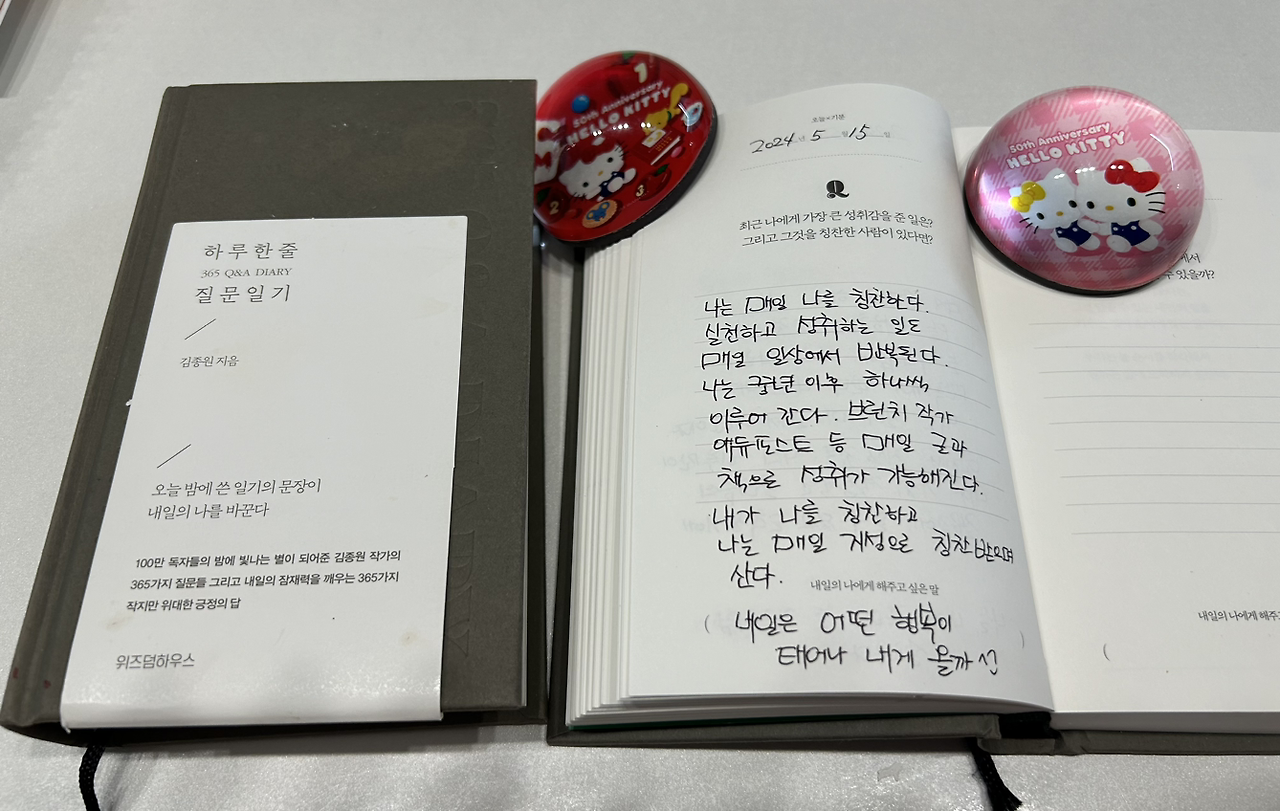 하루 한 줄
365 Q&A DIARY
질문 일기
김종원 지음
오늘 밤에 쓴 일기의 문장이
내일의 나를 바꾼다
100만 독자들의 밤에 빛나는 별이 되어준 김종원 작가의
365가지 질문들 그리고 내일의 잠재력을 깨우는 365가지
작지만 위대한 긍정의 답
위즈덤하우스
1
50th Anniversary
HELLO KITTY
2
3
오늘×기분
2024년 5월 15일
Q
최근 나에게 가장 큰 성취감을 준 일은?
그리고 그것을 칭찬한 사람이 있다면?
나는 매일 나를 칭찬한다.
실천하고 성취하는 일도
매일 일상에서 반복된다.
나는 이후 하나씩
이루어 간다. 브런치 작가
에듀포스트 등 매일 글과
책으로 성취가 가능해진다.
내가 나를 칭찬하고
나는 매일 지성으로 칭찬받으며
산다.
내일의 나에게 해주고 싶은 말
( 내일은 어떤 행복이 )
태어나 내게 올까
50th Anniversary
HELLO KITTY
에서
수 있을까?
내일의 나에게 해주
(